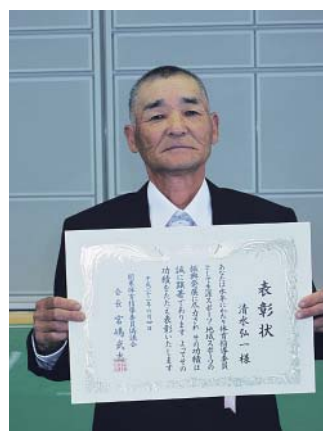 表彰状
清水弘一 様
あなたは永年にわたり体育指導委員
として生涯スポーツ・地域スポーツの
振興発展に尽力されその功績は
誠に顕著であります よってその
功績をたたえ表彰いたします
平成二十一年六月四日
関東体育指導委員協議会
会長 宮嶋